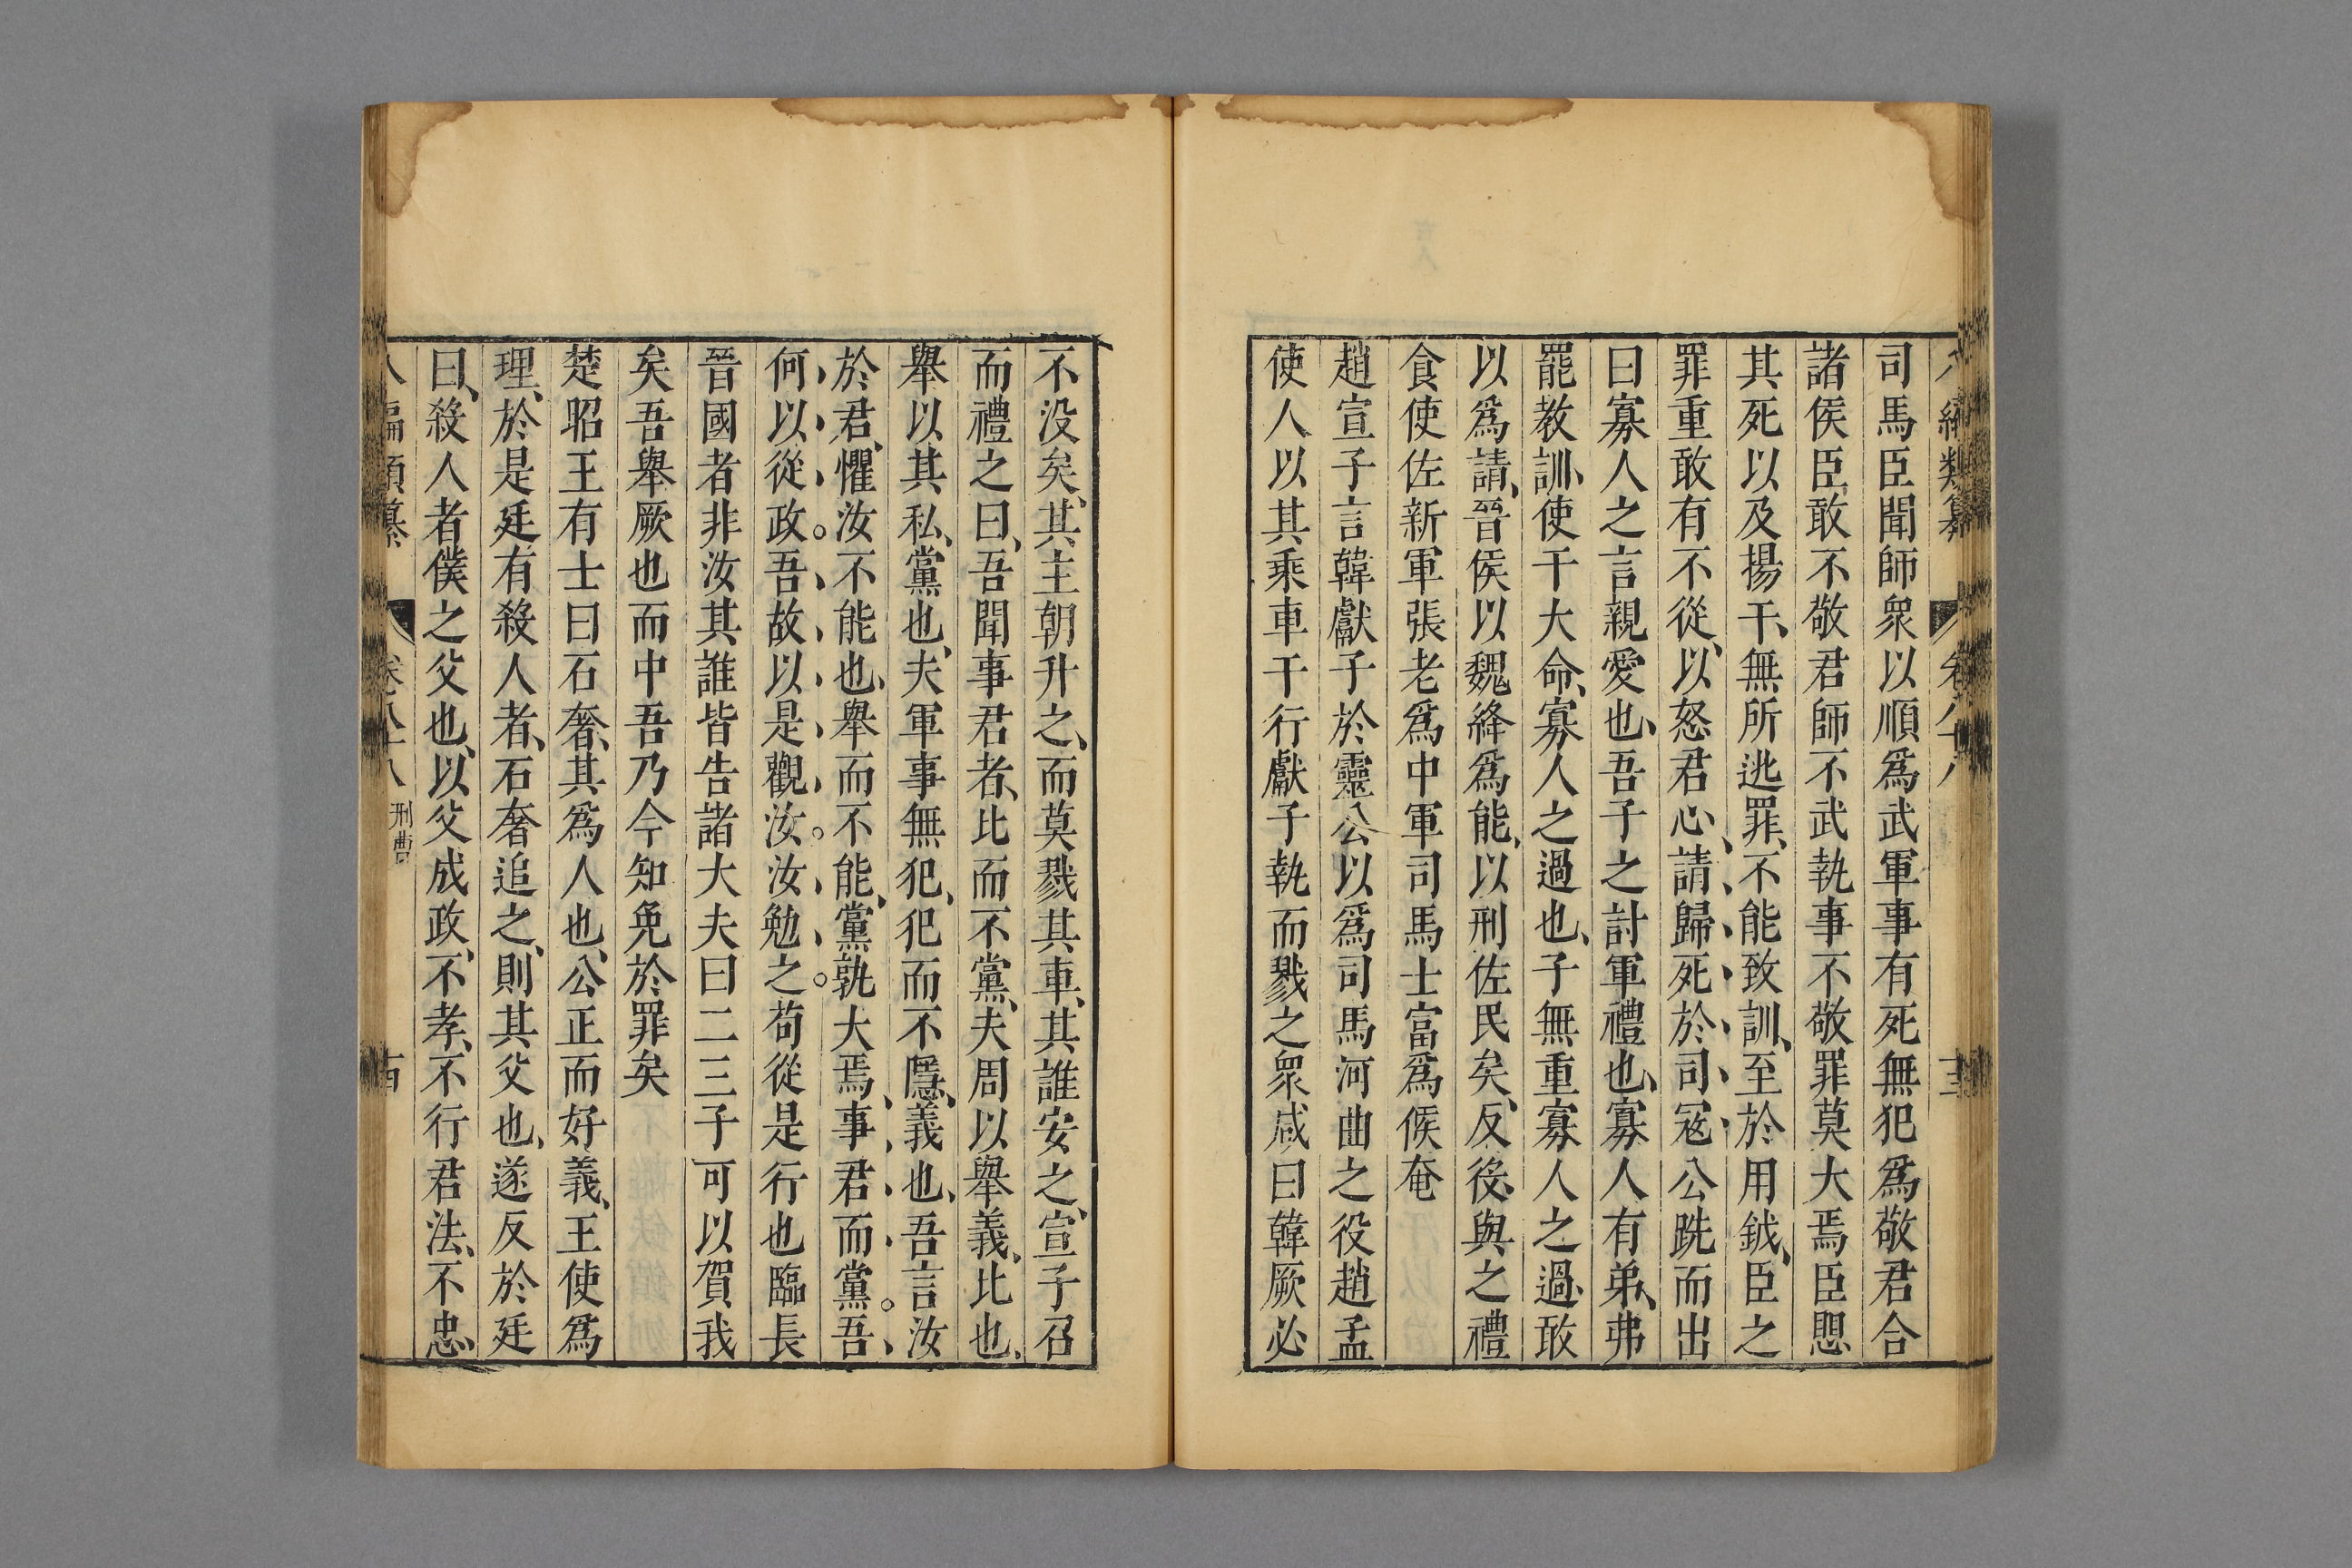 八編類纂 卷八十八 十三
司馬臣聞師衆以順爲武軍事有死無犯爲敬君合
諸侯臣敢不敬君師不武執事不敬罪莫大焉臣懼
其死以及揚干、無所逃罪、不能致訓、至於用鉞、臣之
罪重敢有不從、以怒君心、請歸死於司寇公跣而出
曰寡人之言親愛也、吾子之討軍禮也、寡人有弟、弗
能教訓、使干大命、寡人之過也、子無重寡人之過、敢
以爲請、晉侯以魏絳爲能、以刑佐民矣、反役、與之禮
食使佐新軍張老爲中軍司馬士富爲候奄
趙宣子言韓獻子於靈公以爲司馬河曲之役趙孟
使人以其乘車干行獻子執而戮之衆咸曰韓厥必
不没矣、其主朝升之、而莫戮其車、其誰安之、宣子召
而禮之曰、吾聞事君者、比而不黨、夫周以舉義、比也、
舉以其私、黨也、夫軍事無犯、犯而不隱、義也、吾言汝
於君、懼汝不能也、舉而不能、黨孰大焉、事君而黨。吾
何以從政。吾故以是觀汝。汝勉之。苟從是行也臨長
晉國者非汝其誰皆告諸大夫曰二三子可以賀我
矣吾舉厥也而中吾乃今知免於罪矣
楚昭王有士曰石奢、其爲人也、公正而好義、王使爲
理、於是廷有殺人者、石奢追之、則其父也、遂反於廷
曰、殺人者僕之父也、以父成政、不孝、不行君法、不忠、
八編類纂 卷八十八 刑曹 十四